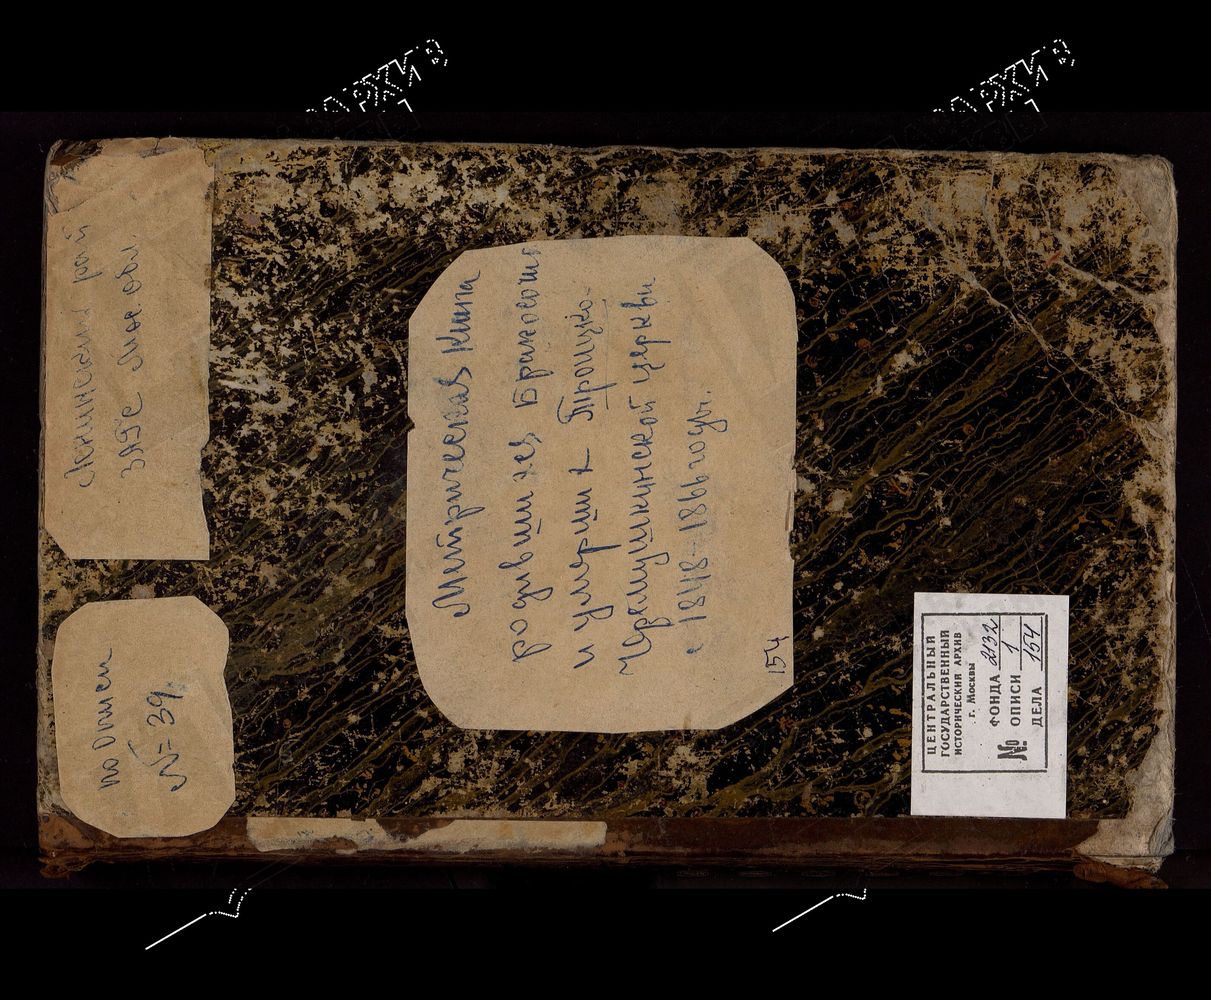 Ленинский рай
ЗАГС Мос. обл.
по Описи
№ 39
Метрическая Книга
родившихся Бракосоч
и умерших Троицко-
Черемушкинской церкви
с 1848-1866 годы.
154
ЦЕНТРАЛЬНЫЙ
ГОСУДАРСТВЕННЫЙ
ИСТОРИЧЕСКИЙ АРХИВ
г. Москвы
№ ФОНДА 2132
ОПИСИ 1
ДЕЛА 154